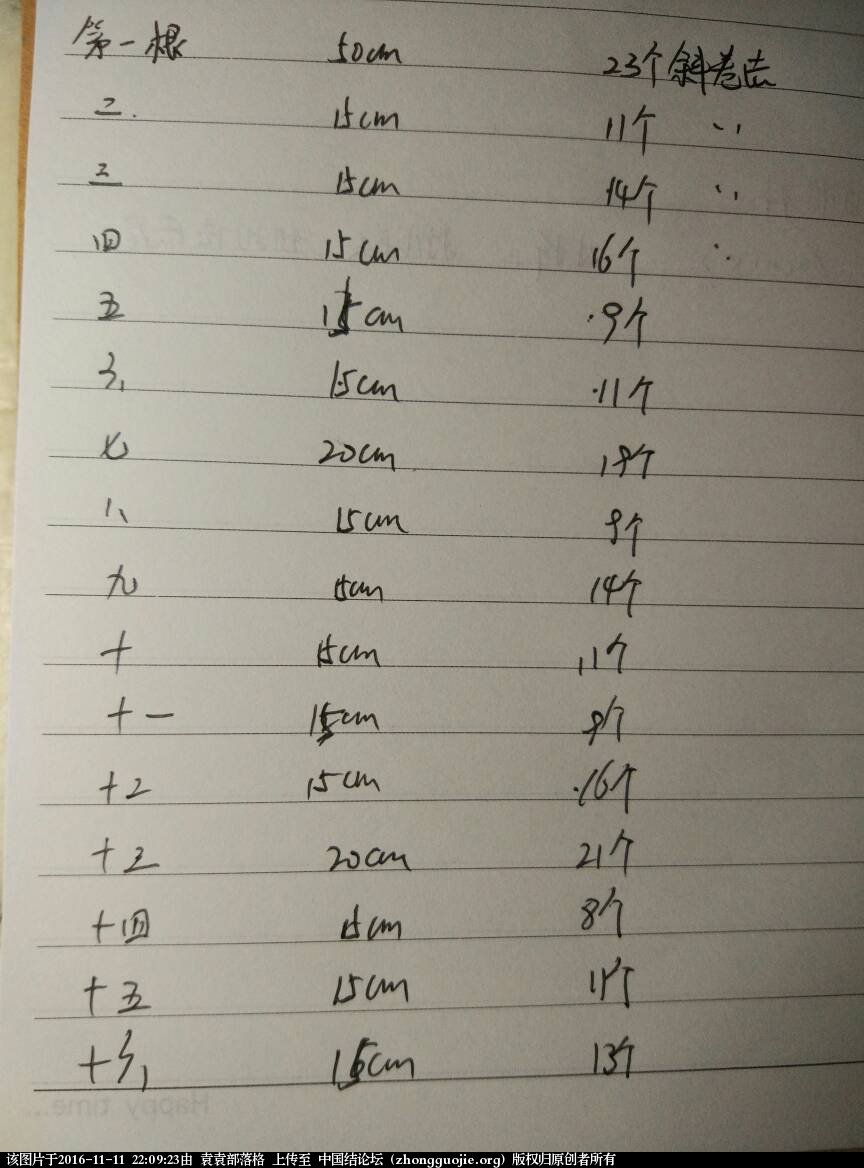 第一根 50cm 23个斜卷结
二. 15cm 11个 〃
三 15cm 14个 〃
四 15cm 16个 〃
五 15cm 9个
六 15cm 11个
七 20cm 19个
八 15cm 9个
九 15cm 14个
十 15cm 11个
十一 15cm 9个
十二 15cm 16个
十三 20cm 21个
十四 15cm 8个
十五 15cm 11个
十六 15cm 13个
Happy time...
该图片于2016-11-11 22:09:23由 袁袁部落格 上传至 中国结论坛 (zhongguojie.org) 版权归原创者所有